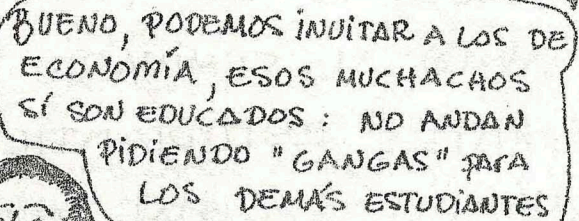 BUENO, PODEMOS iNUiTAR A LOS DE
ECONOMÍA, ESOS MUCHACHOS
SÍ SON EDUCADOS : NO ANDAN
PiDiENDO "GANGAS" PArA
LOS DEMÁS ESTUDiANTES